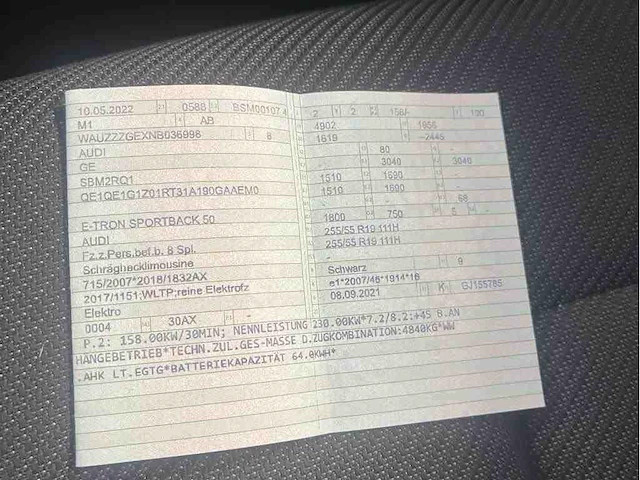 10.05.2022 0588 BSM00107 4
M1 AB
WAUZZZGEXNB036998 8
AUDI
GE
SBM2RQ1
QE1QE1G1Z01RT31A190GAAEM0
E-TRON SPORTBACK 50
AUDI
Fz.z.Pers.bef.b. 8 Spl.
Schräghecklimousine
715/2007*2018/1832AX
2017/1151;WLTP;reine Elektrofz
Elektro
0004 30AX -
2 2 190
4902
1619 -2445
- 80 -
- 3040 3040
1510 1690 -
1510 1690 -
- - 68
1800 750 5 -
255/55 R19 111H
255/55 R19 111H
-
Schwarz 9
e1*2007/46*1914*16
08.09.2021 K GJ155785
P.2: 158.00KW/30MIN; NENNLEISTUNG 230.00KW*7.2/8.2:+45 B.AN
HÄNGEBETRIEB*TECHN.ZUL.GES-MASSE D.ZUGKOMBINATION:4840KG*WW
.AHK LT.EGTG*BATTERIEKAPAZITÄT 64.0KWH*